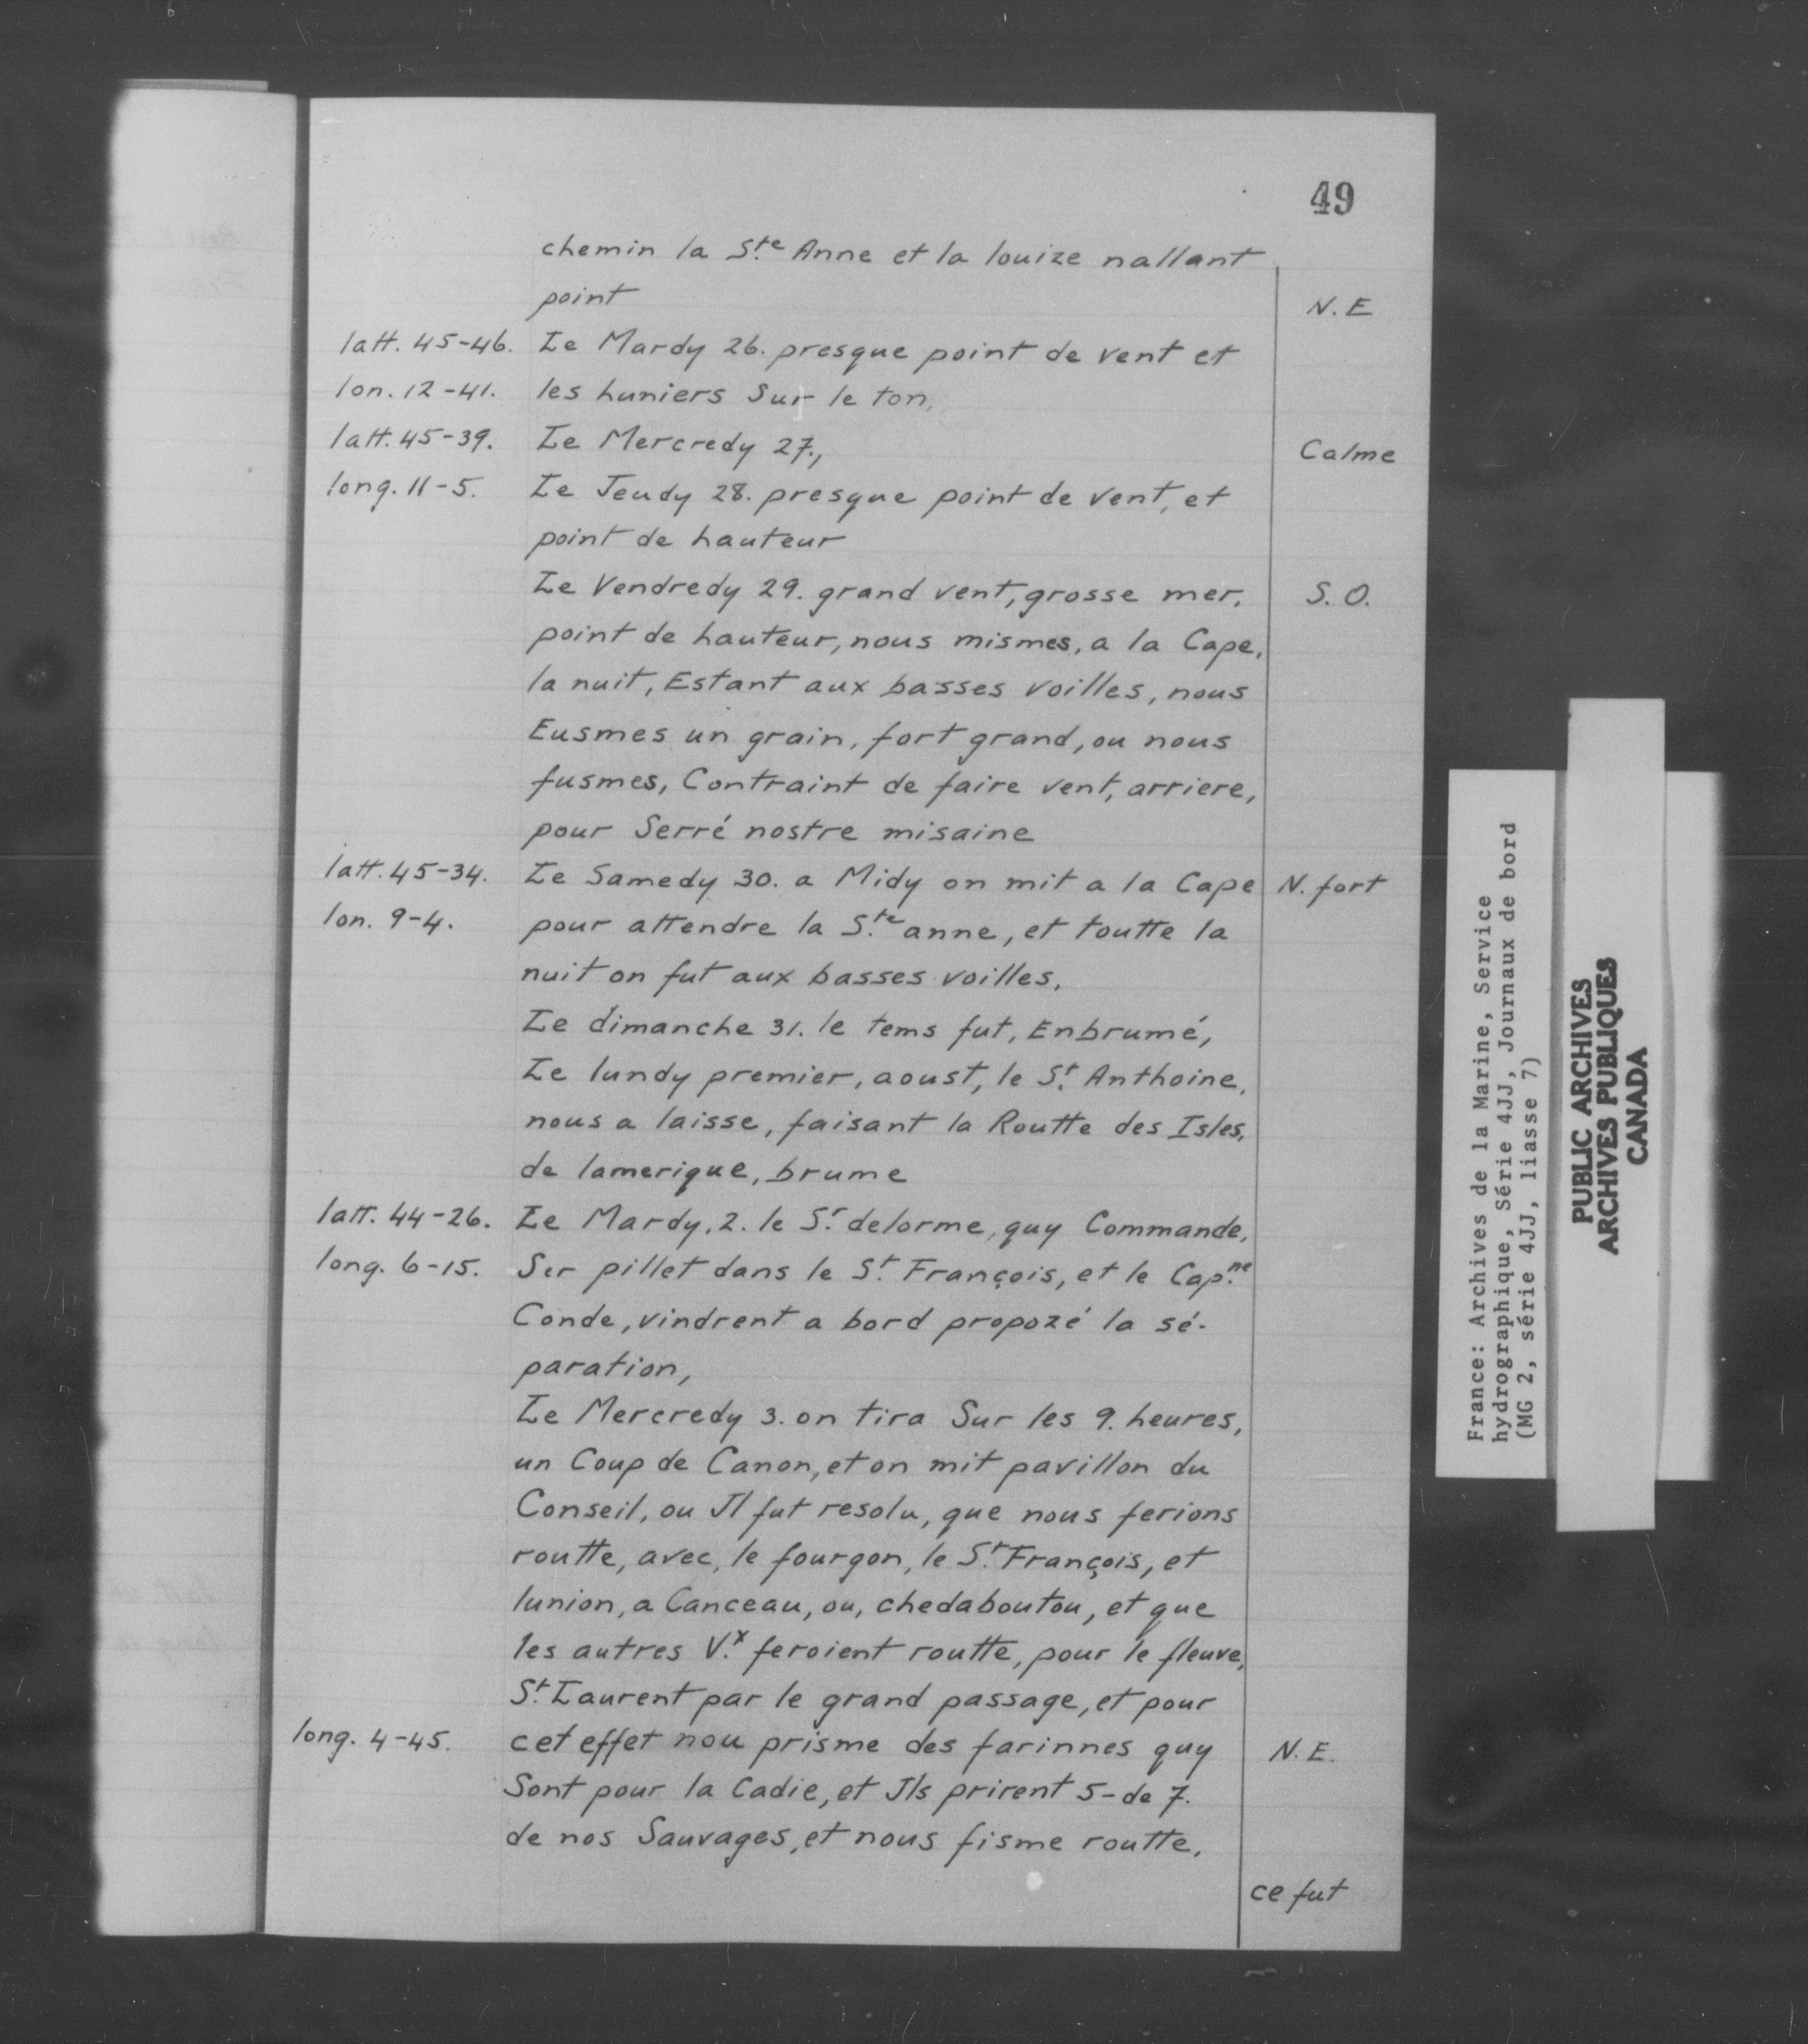 49
chemin la S.te Anne et la louize nallant
point N. E
latt. 45-46. Le Mardy 26. presque point de vent et
lon. 12-41. les huniers Sur le ton,
latt. 45-39. Le Mercredy 27., Calme
long. 11-5. Le Jeudy 28. presque point de vent, et
point de hauteur
Le Vendredy 29. grand vent, grosse mer, S. O.
point de hauteur, nous mismes, a la Cape,
la nuit, Estant aux basses voilles, nous
Eusmes un grain, fort grand, ou nous
fusmes, Contraint de faire vent, arriere,
pour Serré nostre misaine
latt. 45-34. Le Samedy 30. a Midy on mit a la Cape N. fort
lon. 9-4. pour attendre la S.te anne, et toutte la
nuit on fut aux basses voilles,
Le dimanche 31. le tems fut, Enbrumé,
Le lundy premier, aoust, le S.t Anthoine,
nous a laisse, faisant la Routte des Isles,
de lamerique, brume
latt. 44-26. Le Mardy, 2. le S.r delorme, quy Commande,
long. 6-15. Ser pillet dans le S.t François, et le Cap.ne
Conde, vindrent a bord propozé la sé-
paration,
Le Mercredy 3. on tira Sur les 9. heures,
un Coup de Canon, et on mit pavillon du
Conseil, ou Jl fut resolu, que nous ferions
routte, avec, le fourgon, le S.t François, et
lunion, a Canceau, ou, chedaboutou, et que
les autres V.x feroient routte, pour le fleuve,
S.t Laurent par le grand passage, et pour
long. 4-45. cet effet nou prisme des farinnes quy N. E.
Sont pour la Cadie, et Jls prirent 5-de 7.
de nos Sauvages, et nous fisme routte,
ce fut
France: Archives de la Marine, Service
hydrographique, Série 4JJ, Journaux de bord
(MG 2, série 4JJ, liasse 7)
PUBLIC ARCHIVES
ARCHIVES PUBLIQUES
CANADA